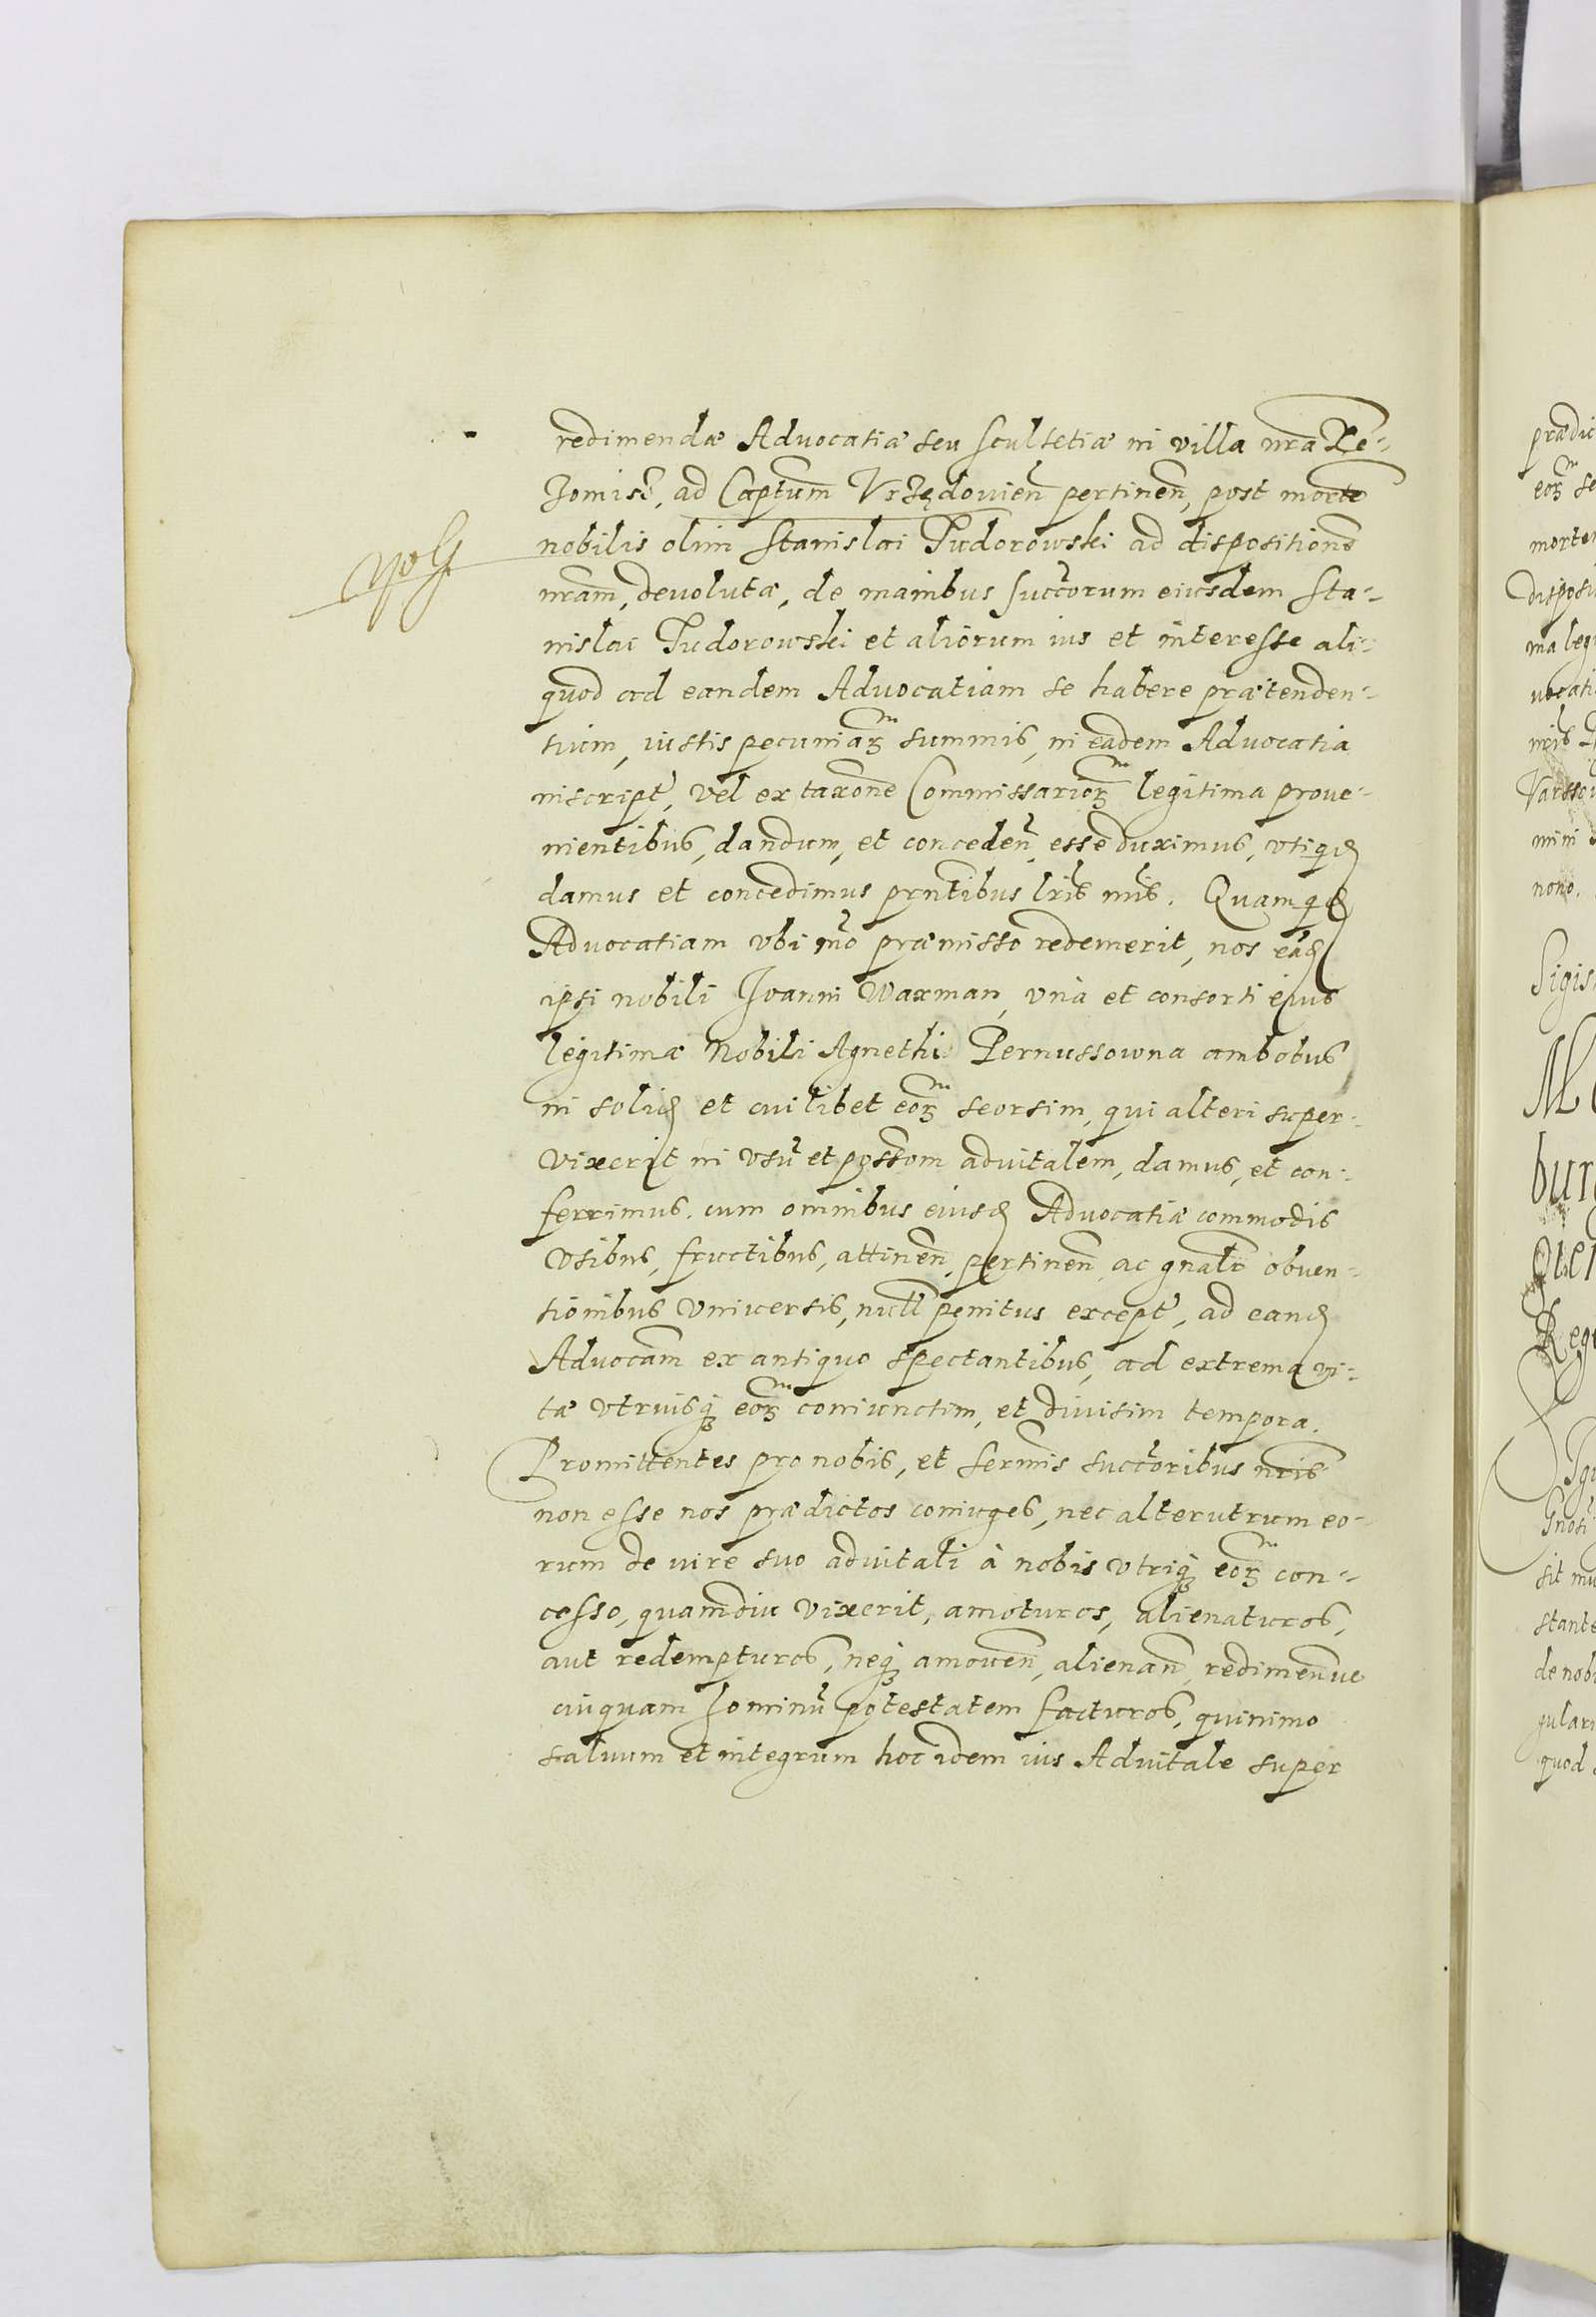 redimendæ Advocatiæ seu scultetiæ in villa nr̃a Xe-
Jomisĕ, ad Cap̃tum Vrzędouieñ pertineñ, post morte
nobilis olim Stanislai Tudorowski ad dispositione
nr̃am, deuolutæ, de manibus succ̃orum eiusdem Sta-
nislai Tudorowski et aliorum ius et interesse ali-
quod ad eandem Advocatiam se habere prætenden-
tium, iustis pecuniaꝝ summis, in eadem Advocatia
inscript', vel ex taxõne Commissarioꝝ legitima proue-
nientibus, dandum, et concedeñ esse duximus, vtiqꝫ
damus et concedimus pr̃ntibus lr̃is nr̃is. Quamqꝫ
Advocatiam vbi m̃o præmisso redemerit, nos eand
ipsi nobili Joanni Waxman, vnà et consorti eius
legitimæ Nobili Agnethi Pernussowna ambobus
in solid et cuilibet eoꝝ seorsim, qui alteri super-
vixerit in vsũ et poss̃om aduitalem, damus, et con-
ferrimus, cum omnibus eiusd Advocatiæ commodis
vsibus, fructibus, attineñ, pertineñ, ac gñalr̃ obuen-
tionibus vniuersis, null penitus except', ad eand
Advocãm ex antiquo spectantibus, ad extrema vi-
tæ vtriusqꝫ eoꝝ coniunctim, et diuisim tempora.
Promittentes pro nobis, et Ser̃mis succ̃oribus nr̃is
non esse nos prædictos coniuges, nec alterutrum eo-
rum de iure suo aduitali à nobis vtriqꝫ eoꝝ con-
cesso, quamdiu vixerit, amoturos, alienaturos,
aut redempturos, neqꝫ amoueñ, alienañ, redimeñue
cuiquam hominũ potestatem facturos, quinimo
saluum et integrum hoc idem ius Aduitale super